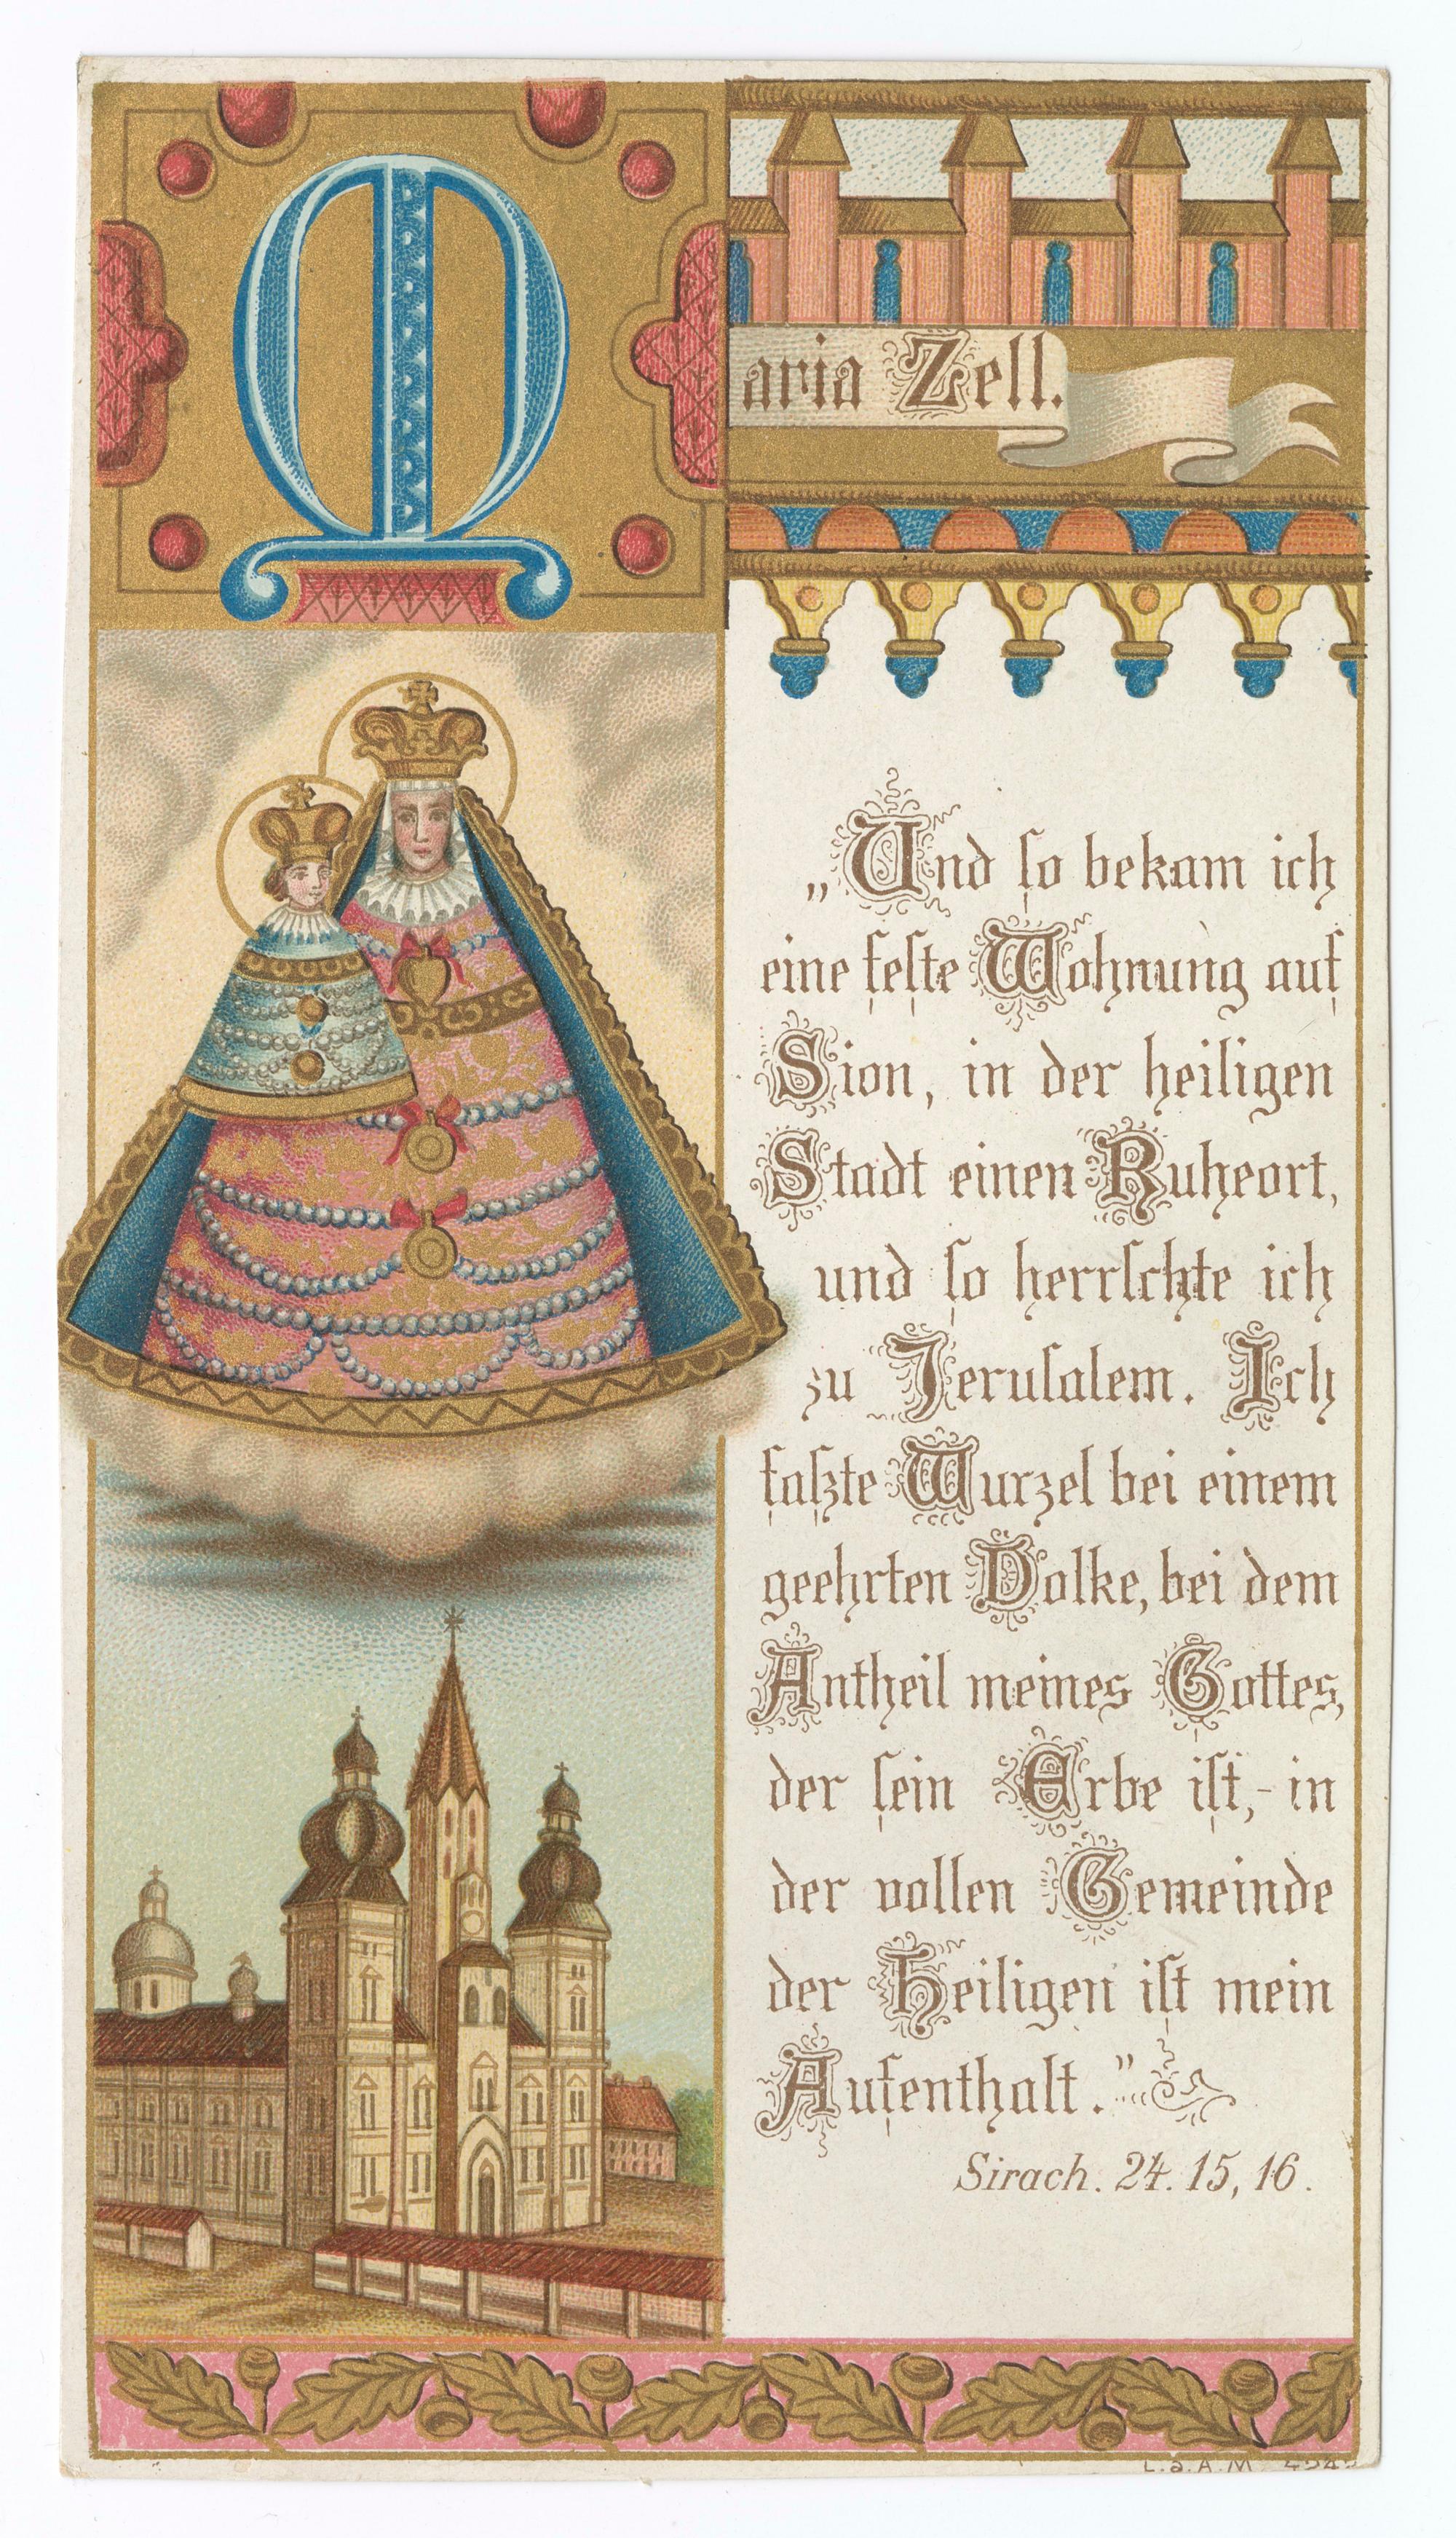 Maria Zell.
„Und ſo bekam ich
eine feſte Wohnung auf
Sion, in der heiligen
Stadt einen Ruheort,
und ſo herrſchte ich
zu Jeruſalem. Ich
faſzte Wurzel bei einem
geehrten Volke, bei dem
Antheil meines Gottes,
der ſein Erbe iſt,- in
der vollen Gemeinde
der Heiligen iſt mein
Aufenthalt."
Sirach. 24. 15, 16.
L.&.A.M